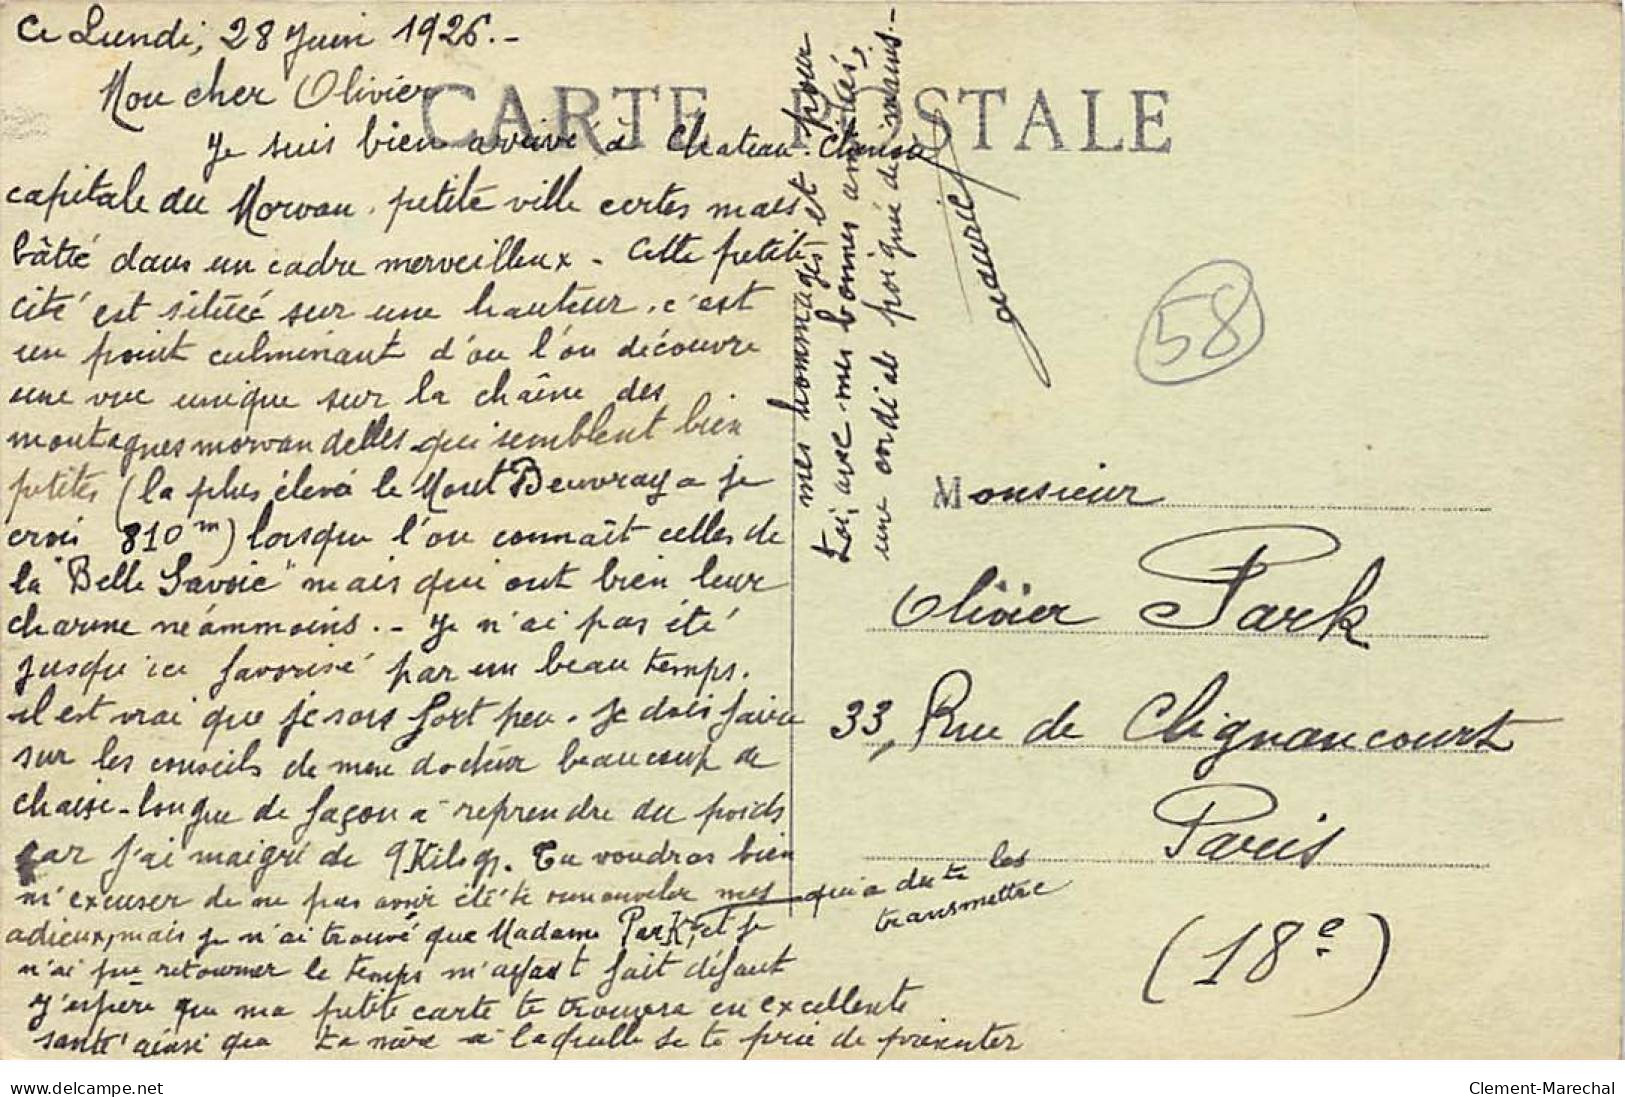 Ce Lundi, 28 Juin 1926.-
Mon cher Olivier
CARTE POSTALE
Je suis bien arrivé à Chateau-Chinon
capitale du Morvan, petite ville certes mais
bâtie dans un cadre merveilleux - Cette petite
cité est située sur une hauteur, c'est
un point culminant d'ou l'on découvre
une vue unique sur la chaîne des
montagnes morvandelles qui semblent bien
petites (la plus élevé le Mont Beuvray a je
crois 810m) lorsque l'on connaît celles de
la "Belle Savoie" mais qui ont bien leur
charme néammoins. - Je n'ai pas été
jusqu'ici favorisé par un beau temps.
il est vrai que je sors fort peu. Je dois faire
sur les conseils de mon docteur beaucoup de
chaise-longue de façon à reprendre du poids
car j'ai maigri de 9 Kilogs. Tu voudras bien
m'excuser de ne pas avoir été te renouveler mes
adieux, mais je n'ai trouvé que Madame Park, et je
qui a du te les
transmettre
n'ai pu retourner le temps m'ayant fait défaut
J'espère que ma petite carte te trouvera en excellente
santé ainsi que ta mère à laquelle je te prie de présenter
mes hommages et pour
toi, avec mes bonnes amitiés,
une cordiale poignée de mains.-
Maurice
58
Monsieur
Olivier Park
33, Rue de Clignancourt
Paris
(18e)
www.delcampe.net
Clement-Marechal